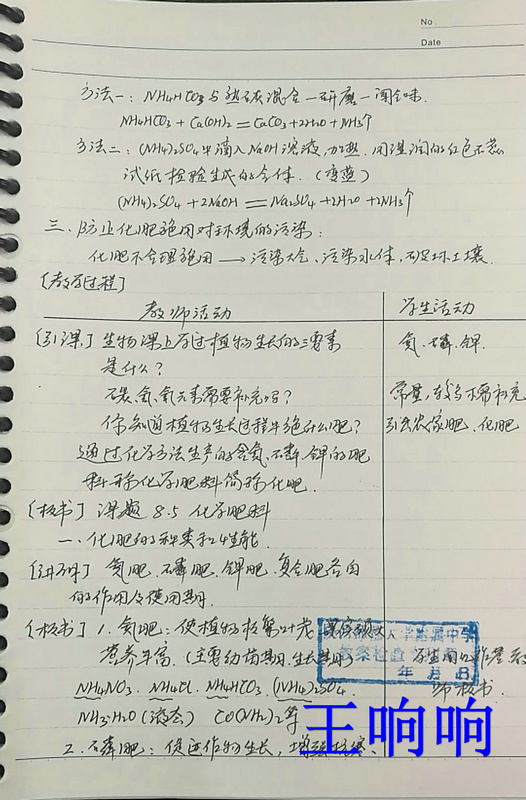 No.
Date
方法一：NH4HCO3与熟石灰混合—研磨—闻气味.
NH4HCO3 + Ca(OH)2 = CaCO3+2H2O + NH3↑
方法二：(NH4)2SO4中滴入NaOH溶液,加热.用湿润的红色石蕊
试纸检验生成的气体.(变蓝)
(NH4)2SO4 + 2NaOH = Na2SO4 + 2H2O + 2NH3↑
三.防止化肥施用对环境的污染：
化肥不合理施用 → 污染大气、污染水体、破坏土壤.
[教学过程]
教师活动 学生活动
[引课] 生物课上学过植物生长的三要素 氮.磷.钾.
是什么？
碳、氢、氧元素需要补充吗？
你知道植物生长过程中施什么肥？ 农家肥、化肥
通过化学方法生产的含氮、磷、钾的肥
料称化学肥料简称化肥.
[板书] 课题 8.5 化学肥料
一、化肥的种类和性能.
[讲解] 氮肥.磷肥.钾肥.复合肥各自
的作用及使用期.
[板书] 1. 氮肥：使植物枝繁叶茂 果实硕大
营养丰富.(主要幼苗期.生长期用)
学附属中学
教案检查
年 月 日
NH4NO3. NH4Cl. NH4HCO3. (NH4)2SO4.
板书.
NH3·H2O (液态) CO(NH2)2等
2. 磷肥：促进作物生长，增强抗寒、
王响响